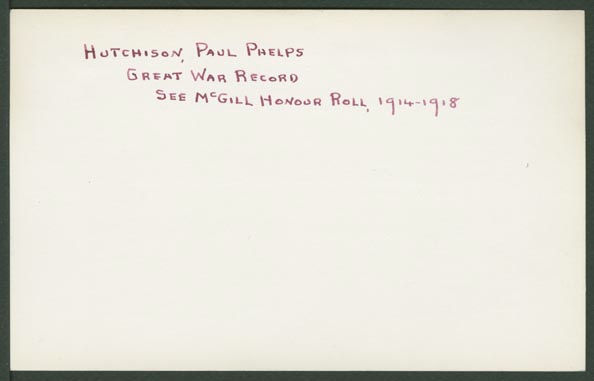 Hutchison, Paul Phelps
Great War Record
See McGill Honour Roll, 1914-1918